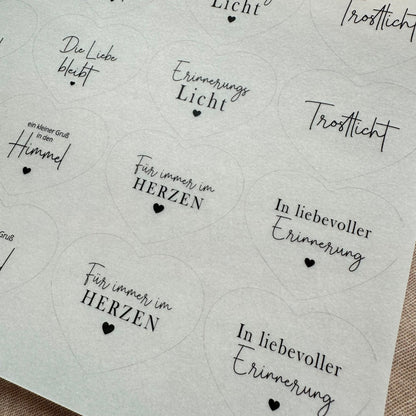 Licht
Trostlicht
Die Liebe
bleibt
Erinnerungs
Licht
Trostlicht
ein kleiner Gruß
in den
Himmel
Für immer im
HERZEN
In liebevoller
Erinnerung
Gruß
Für immer im
HERZEN
In liebevoller
Erinnerung